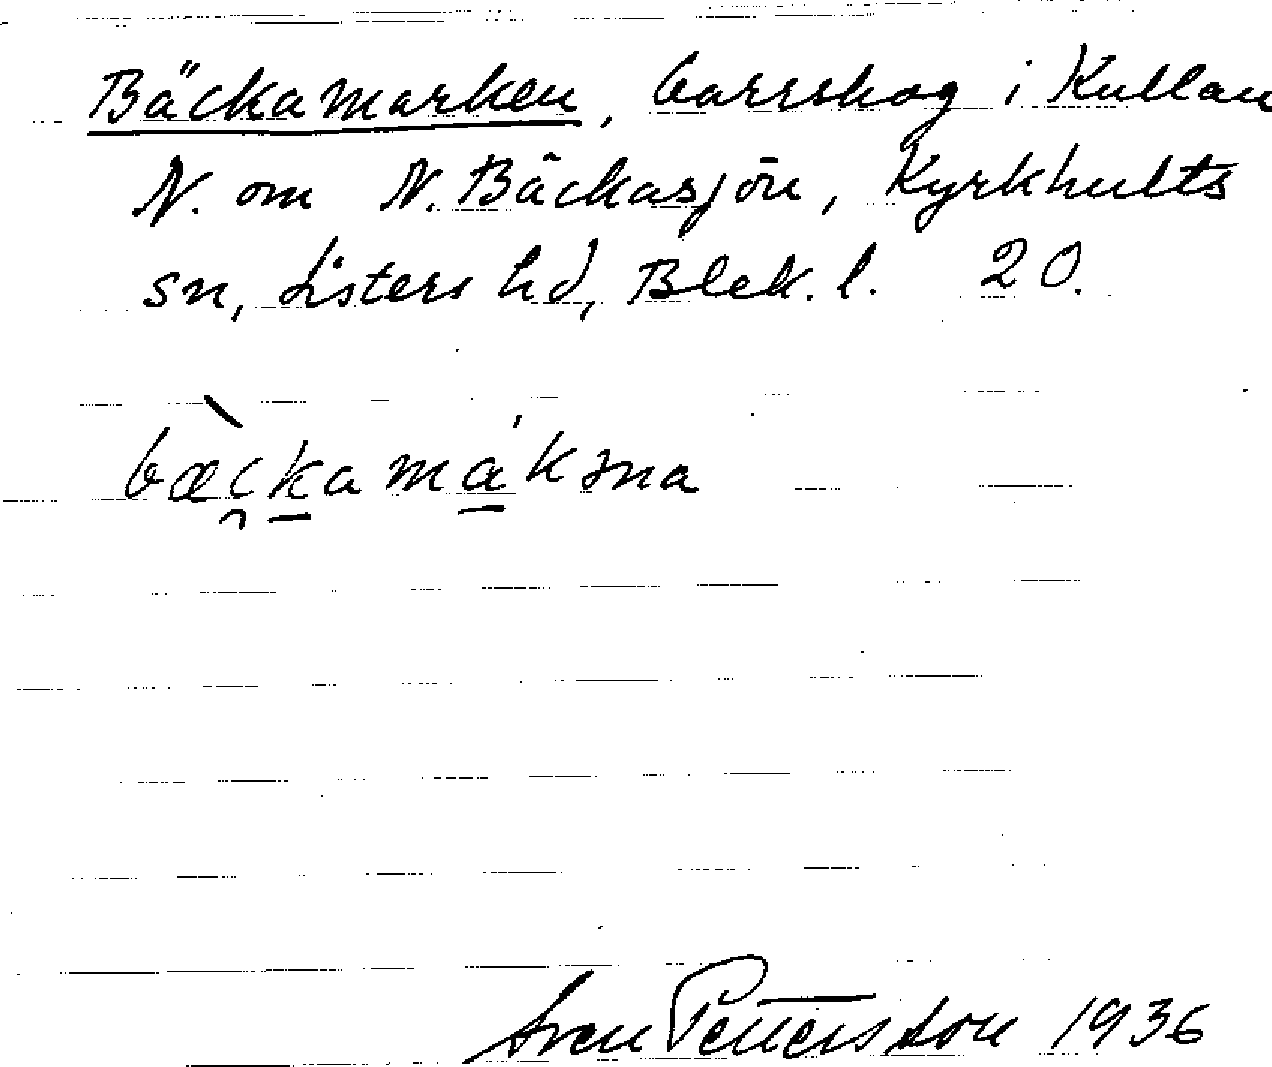 Bäckamarken, barrskog i Kullan
N. om N. Bäckasjön, Kyrkhults
sn, Listers hd, Blek. l. 20.
bæ̀i̯kamákəna
Sven Pettersson 1936